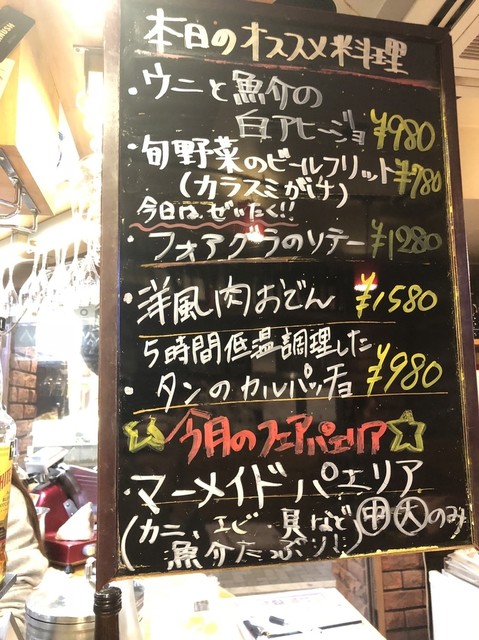 本日のオススメ料理
・ウニと魚介の
白アヒージョ ¥980
・旬野菜のビールフリット ¥780
(カラスミがけ)
今日は、ぜいたく!!
・フォアグラのソテー ¥1280
・洋風肉おでん ¥1580
5時間低温調理した
・タンのカルパッチョ ¥980
☆今月のフェアパエリア☆
・マーメイドパエリア
(カニ、エビ、貝など 中大のみ
魚介たっぷり!)